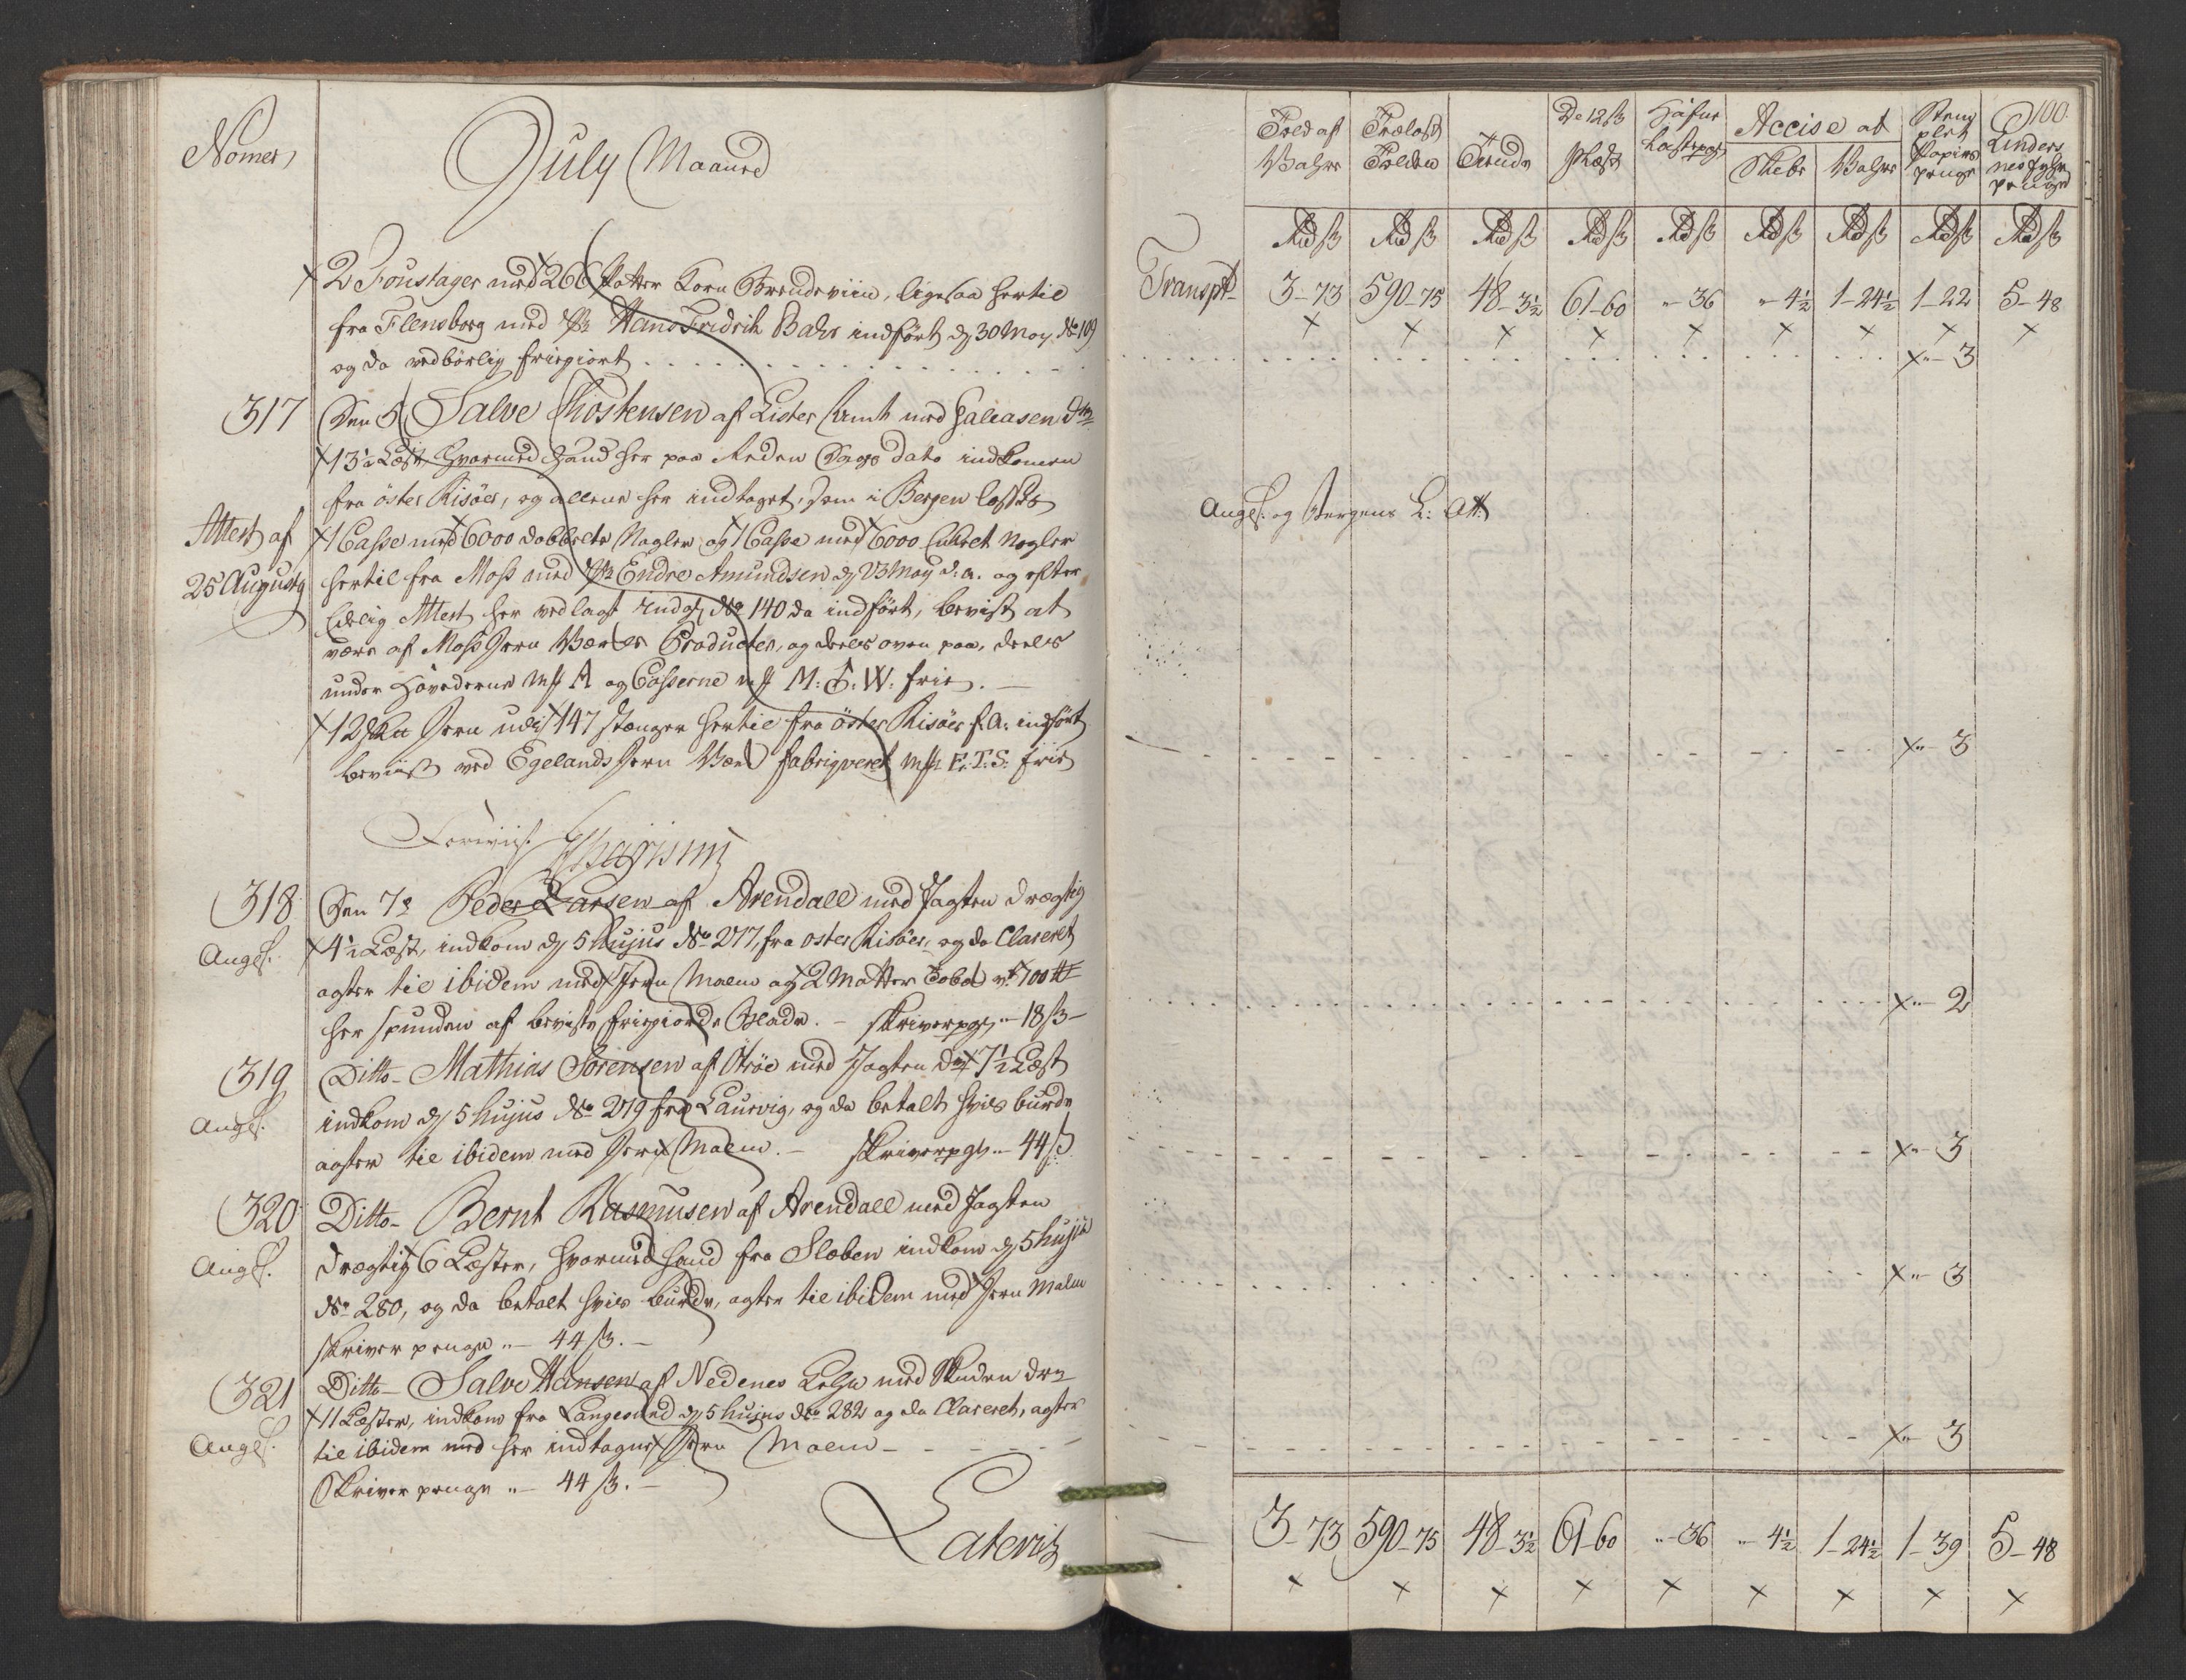 Nomer
July Maaned
2 Foustager med 266 Potter Korn Brendeviin, ligesaa hertil
fra Flensborg med Skr Hans Fridrik Bahr indført d 30 May No 109
og da vedbörlig friegiort
317
Den 5 Salve Thostensen af Lister Amt med Galeasen
13½ Læst, hvormed hand her paa Reden Dags dato indkomen
fra öster Risöer, og allene her indtaget, som i Bergen losses
Attest af
25 Augusty
1 Casse med 6000 dobbelte Nagler og 1 Casse med 6000 Nagler
hertil fra Moss med Skr Endre Amundsen d 23 May d: a. og efter
Edelig Attest her vedlagt No 140 da indført, beviist at
være af Moss Jern Værkes Producter, og deels oven paa, deels
under Hovederne A og Casserne M: T: W. frie.
12 Jern udi 147 Stænger hertil fra öster Risöer f: A: indført
beviist ved Egelands Jern Værk fabriqveret E: T: S: frie
318
Den 7de Peder Larsen af Arendall med Jagten drægtig
Angl.
4½ Læst, indkom d 5 hujus No 277, fra oster Risöer, og da Clareret
agter til ibidem med Jern Malm og 2 Matter Tobak 700 ℔
her spunden af beviste friegiorde Blade. – skriverpge „– 18 ß –
319
Ditto – Mathias Sörensen af Otröe med Jagten 7½ Læst
Angl.
indkom d 5 hujus No 279 fra Laurvig, og da betalt hvis burde
agter til ibidem med Jern Malm. – skriverpge „– 44 ß
320
Ditto – Bernt Rasmusen af Arendall med Jagten
Angl.
drægtig 6 Læster, hvormed hand fra Sleben indkom d 5 hujus
No 280, og da betalt hvis burde, agter til ibidem med Jern Malm
skriver penge „– 44 ß. –
321
Ditto – Salve Hansen af Nedenes Lehn med Skuden
Angl.
11 Læster, indkom fra Langesund d 5 hujus No 282 og da Clareret, agter
til ibidem med her indtagne Jern Malm
Skriver penge „– 44 ß. –
Lateris
100.
Told af Vahre
Trælast Tolden
Tiende
De 12 ß pLæst
Hafne Lastepge
Accise af
Skibe
Vahre
Stemplet Papiirs penge
Lindersnes fyhr penge
Rd ß Rd ß Rd ß Rd ß Rd ß Rd ß Rd ß Rd ß Rd ß
Transpt 3–73 590–75 48–3½ 61–60 „–36 „–4½ 1–24½ 1–22 5–48
„– 3
Angl: og Bergens L: Att
„– 3
„– 2
„– 3
„– 3
„– 3
3–73 590–75 48–3½ 61–60 „–36 „–4½ 1–24½ 1–39 5–48